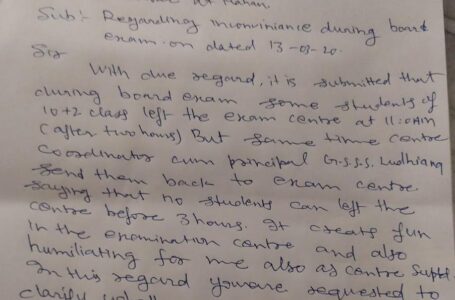 at
Sub:- Regarding inconviniance during board
exam. on dated 13-03-20.
Sir
With due regard, it is submitted that
during board exam some students of
10+2 class left the exam centre at 11:0AM
(after two hours) But same time centre
coordinator cum principal G.S.S.S. Ludhiana
send them back to exam centre.
Saying that no students can left the
centre before 3 hours. It creats fun
in the examination centre and also
humiliating for me also as centre Suptt.
In this regard you are requested to
clarify